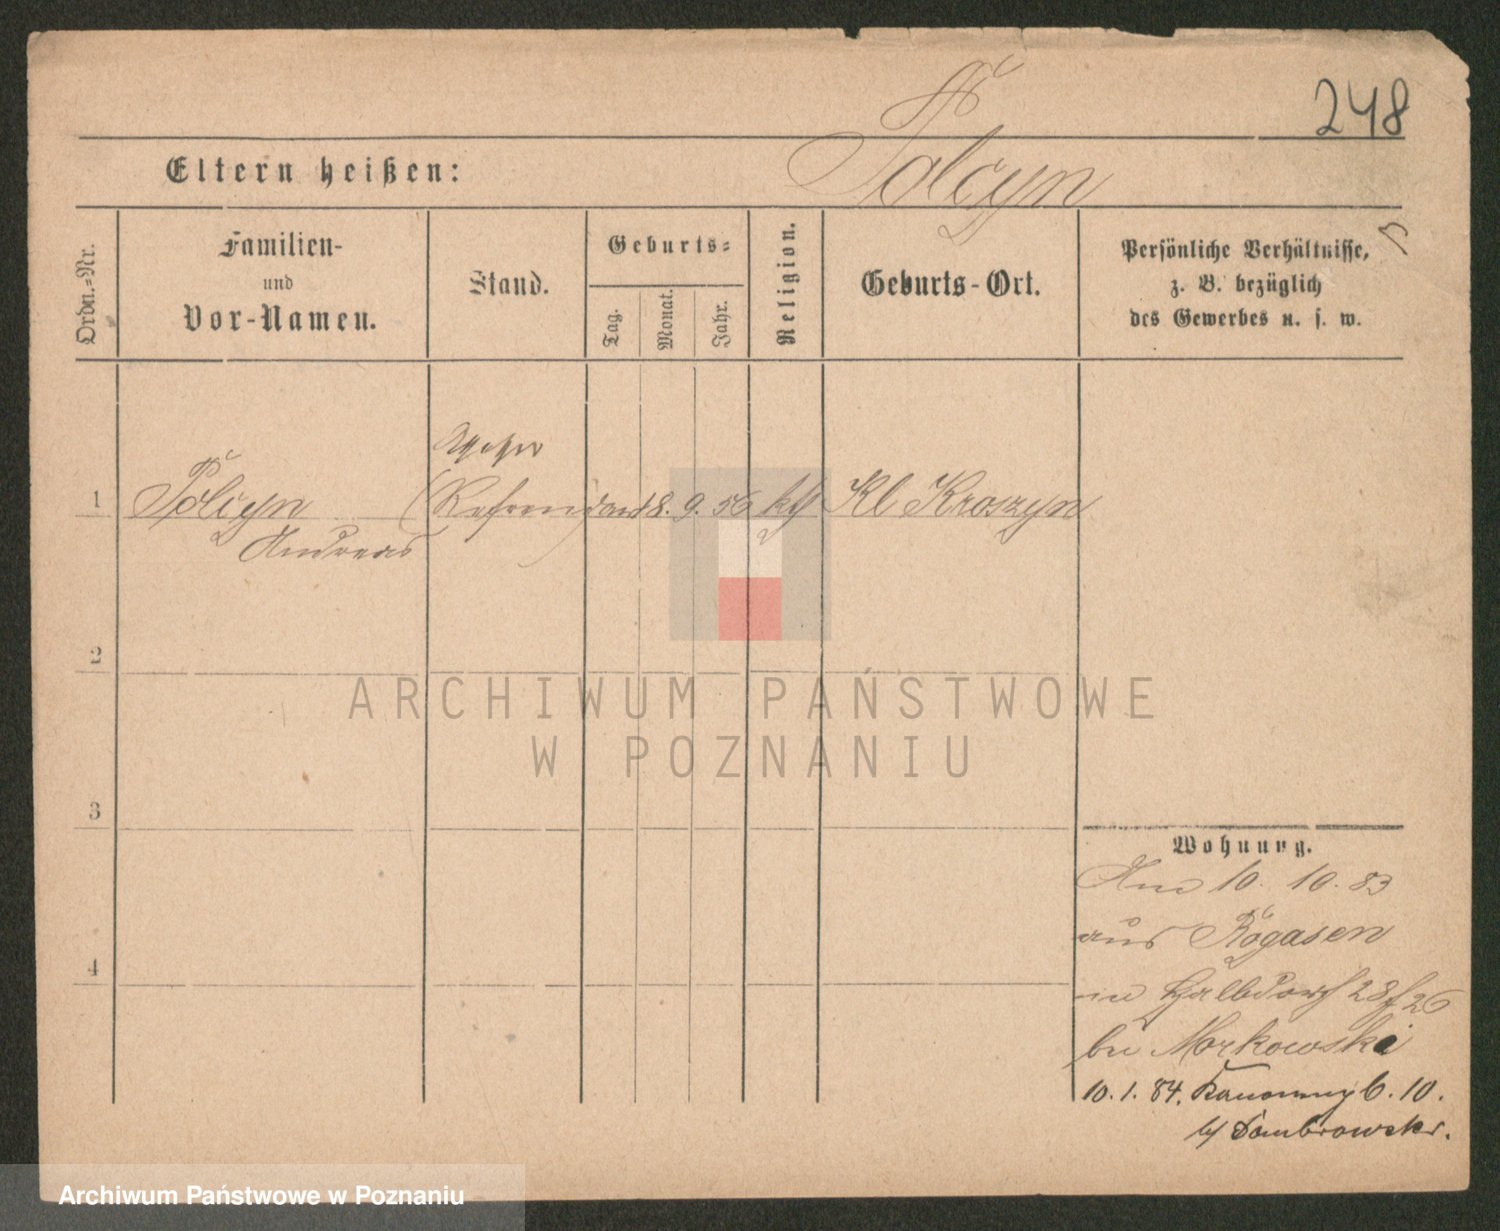 248
Polcyn
Eltern heißen:
Ordn.-Nr.
Familien-
und
Vor-Namen.
Stand.
Geburts-
Tag.
Monat.
Jahr.
Religion.
Geburts-Ort.
Persönliche Verhältnisse,
z. B. bezüglich
des Gewerbes u. s. w.
1
Polcyn
Andreas
(Referendar)
8. 9. 56
kth
Kl Kroszyn
2
3
4
ARCHIWUM PAŃSTWOWE
W POZNANIU
Wohnung.
10. 10. 83
aus Rogasen
in Halbdorf 28/26
bei Morkowski
10. 1. 84. 6. 10.
b/ Dombrowski.
Archiwum Państwowe w Poznaniu